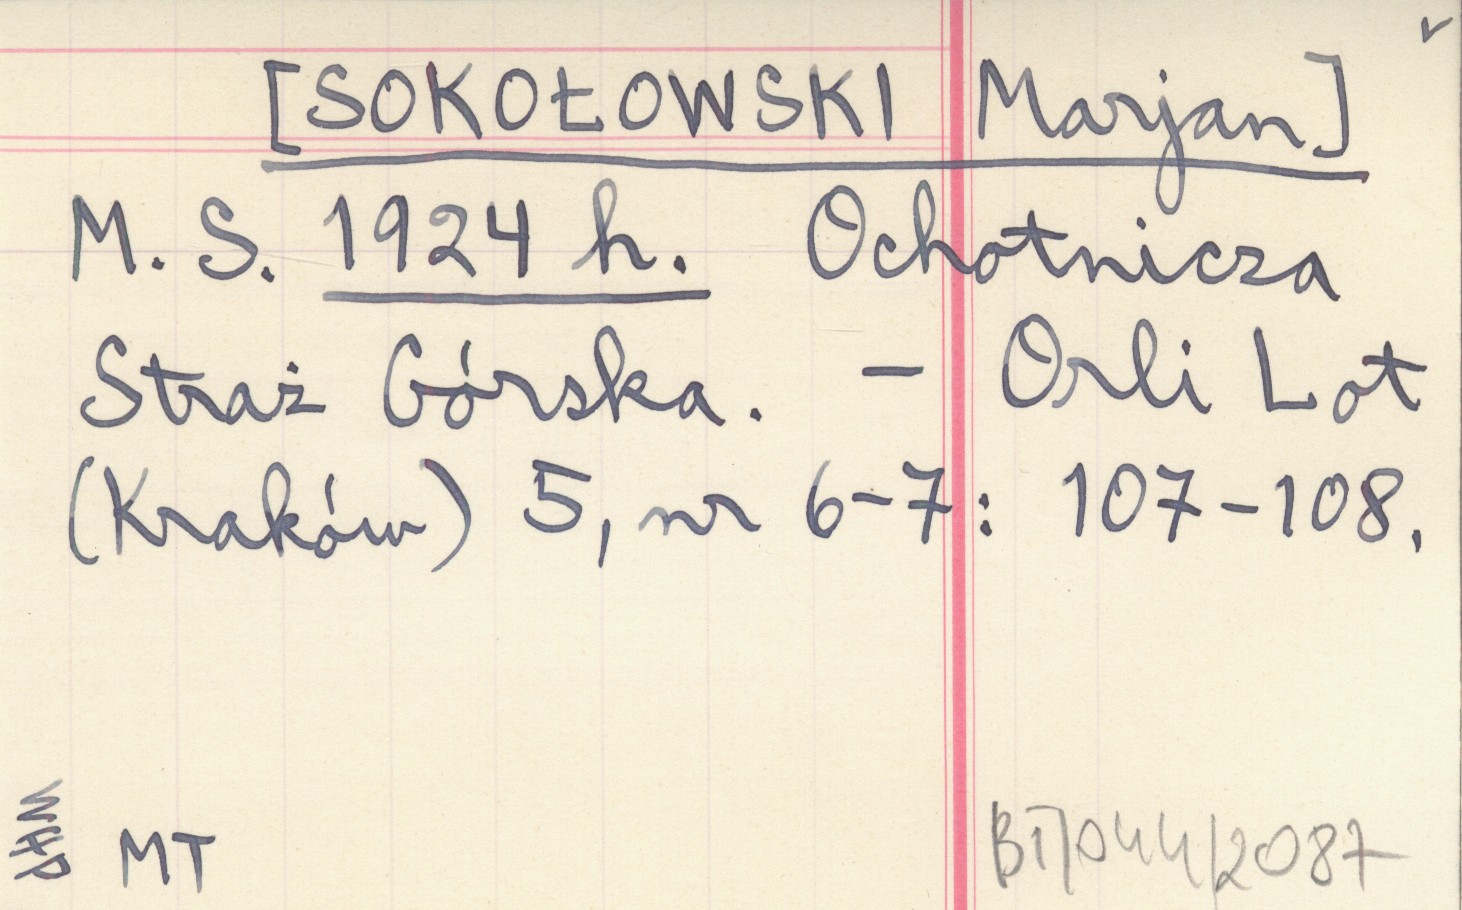 [SOKOŁOWSKI Marjan]
M. S. 1924 h. Ochotnicza
Straż Górska. – Orli Lot
(Kraków) 5, nr 6-7: 107-108.
MT
BT/044/2087